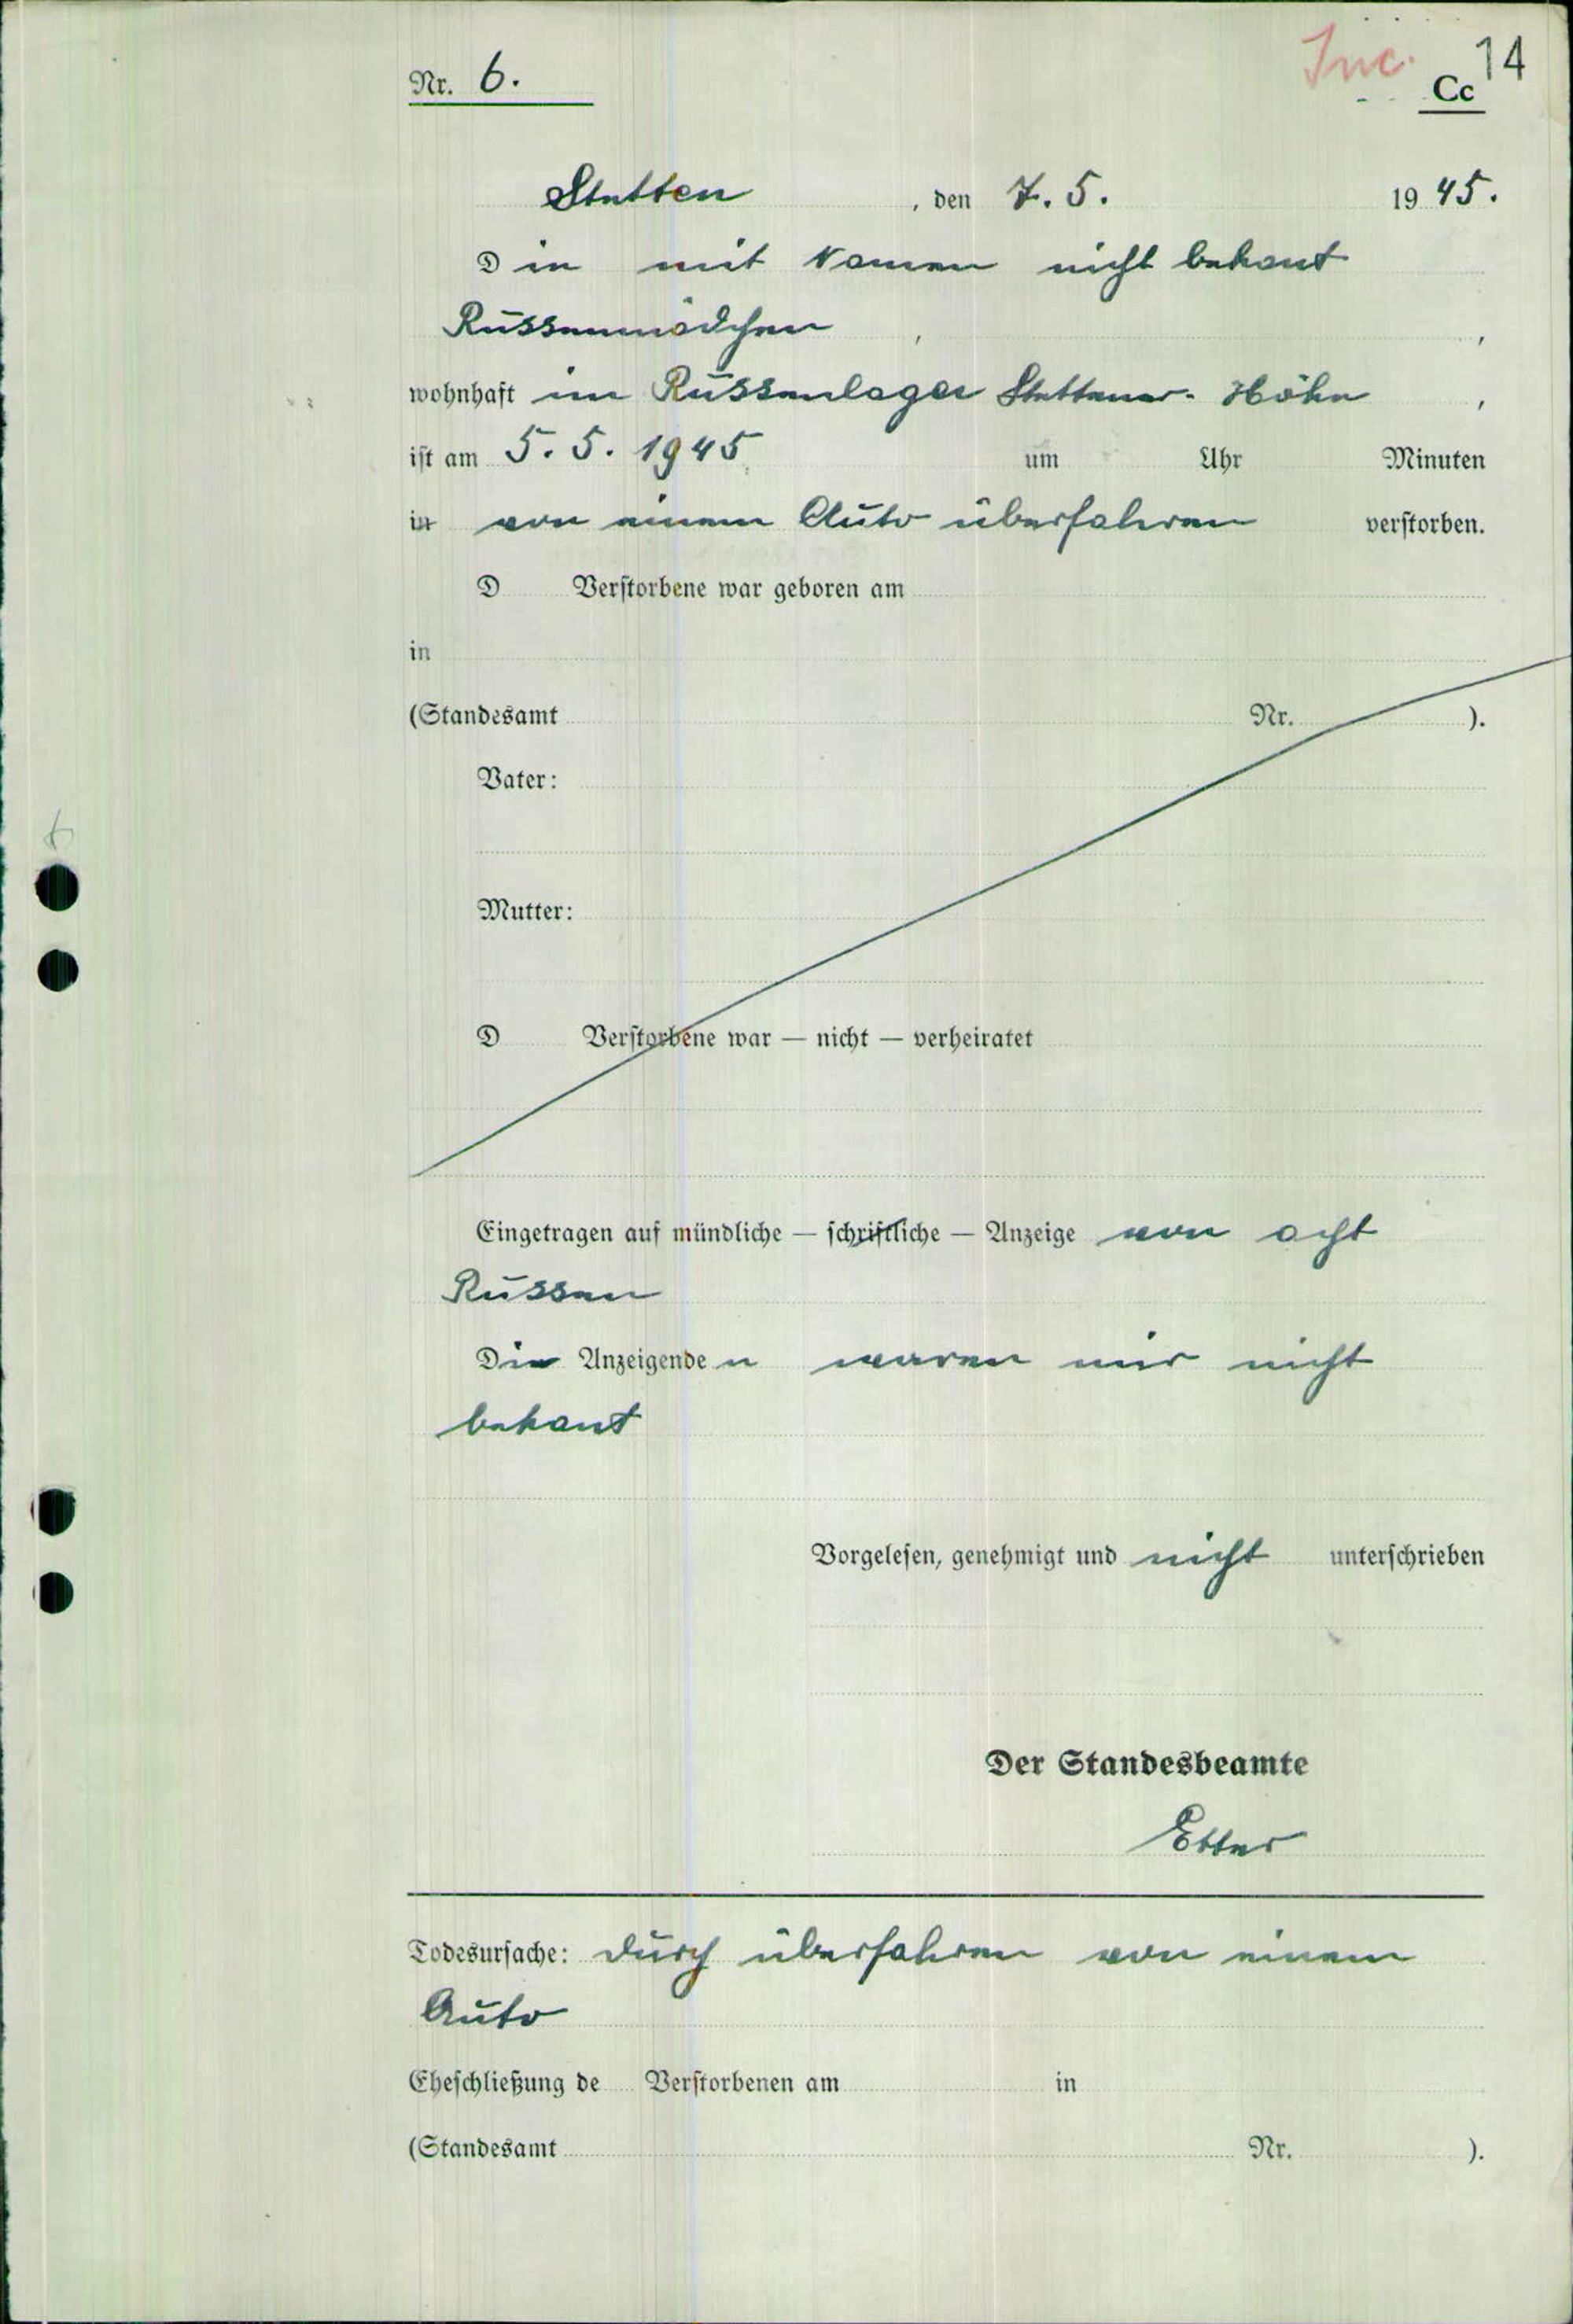 Inc. 14
Nr. 6.
Cc
Stetten, den 7. 5. 1945.
Die mit Namen nicht bekant
Russenmädchen , ,
wohnhaft im Russenlager Stettener-Höhe ,
ist am 5. 5. 1945 um Uhr Minuten
in von einem Auto überfahren verstorben.
D Verstorbene war geboren am
in
(Standesamt Nr. ).
Vater:
Mutter:
D Verstorbene war — nicht — verheiratet
Eingetragen auf mündliche — schriftliche — Anzeige von acht
Russen
Die Anzeigenden waren mir nicht
bekant
Vorgelesen, genehmigt und nicht unterschrieben
Der Standesbeamte
Etter
Todesursache: durch überfahren von einem
Auto
Eheschließung de Verstorbenen am in
(Standesamt Nr. ).